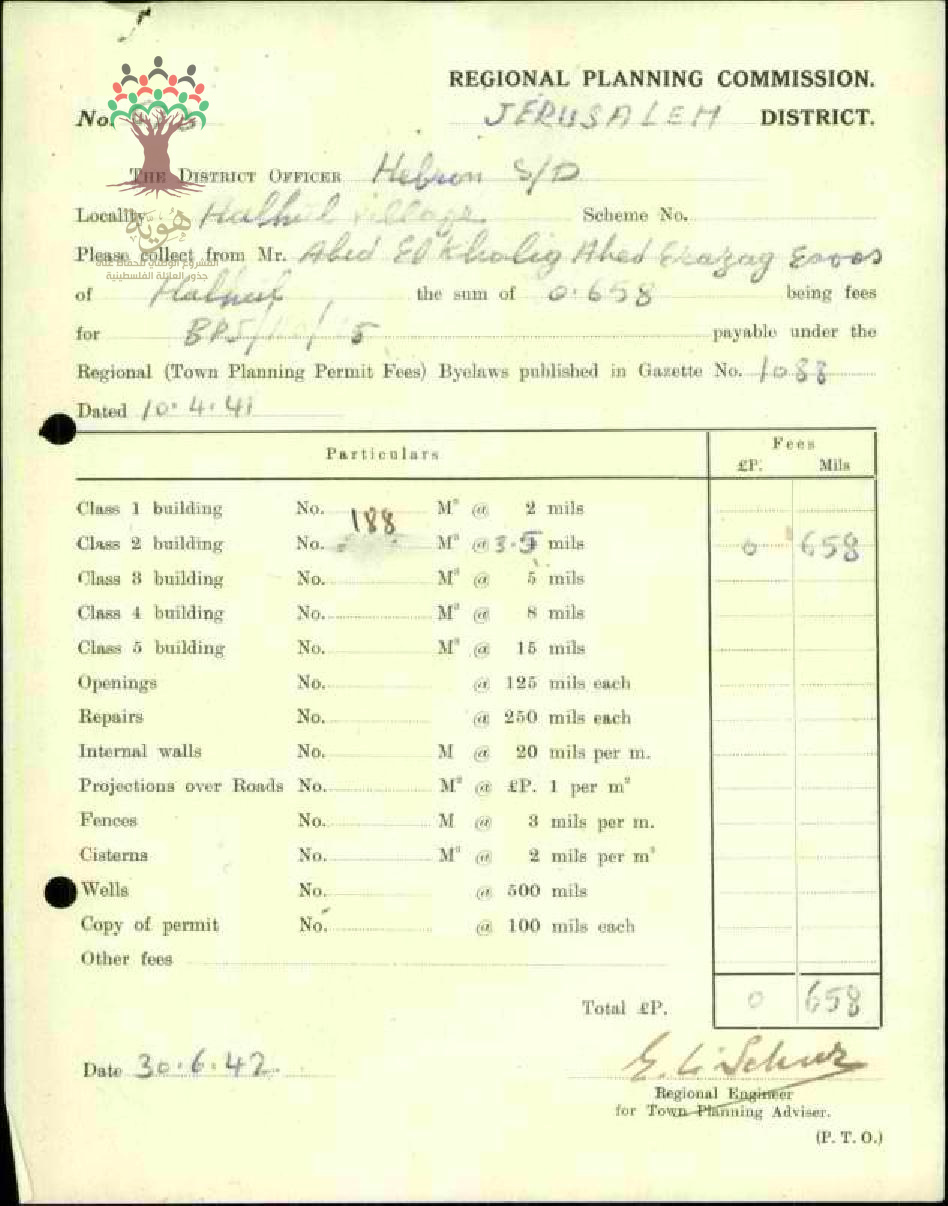 REGIONAL PLANNING COMMISSION.
No.
JERUSALEM DISTRICT.
THE DISTRICT OFFICER Hebron S/D
Locality Halhul village Scheme No.
هُويّة
Please collect from Mr. Abed El Khaliq Abed Erazag
المشروع الوطني للحفاظ على
جذور العائلة الفلسطينية
of Halhul the sum of 0.658 being fees
for payable under the
Regional (Town Planning Permit Fees) Byelaws published in Gazette No. 1088
Dated 10.4.41
Particulars Fees
£P. Mils
Class 1 building No. M² @ 2 mils
Class 2 building No. 188 M² @ 3.5 mils 0 658
Class 3 building No. M² @ 5 mils
Class 4 building No. M² @ 8 mils
Class 5 building No. M² @ 15 mils
Openings No. @ 125 mils each
Repairs No. @ 250 mils each
Internal walls No. M @ 20 mils per m.
Projections over Roads No. M² @ £P. 1 per m²
Fences No. M @ 3 mils per m.
Cisterns No. M³ @ 2 mils per m³
Wells No. @ 500 mils
Copy of permit No. @ 100 mils each
Other fees
Total £P. 0 658
Date 30.6.42.
Regional Engineer
for Town Planning Adviser.
(P. T. O.)